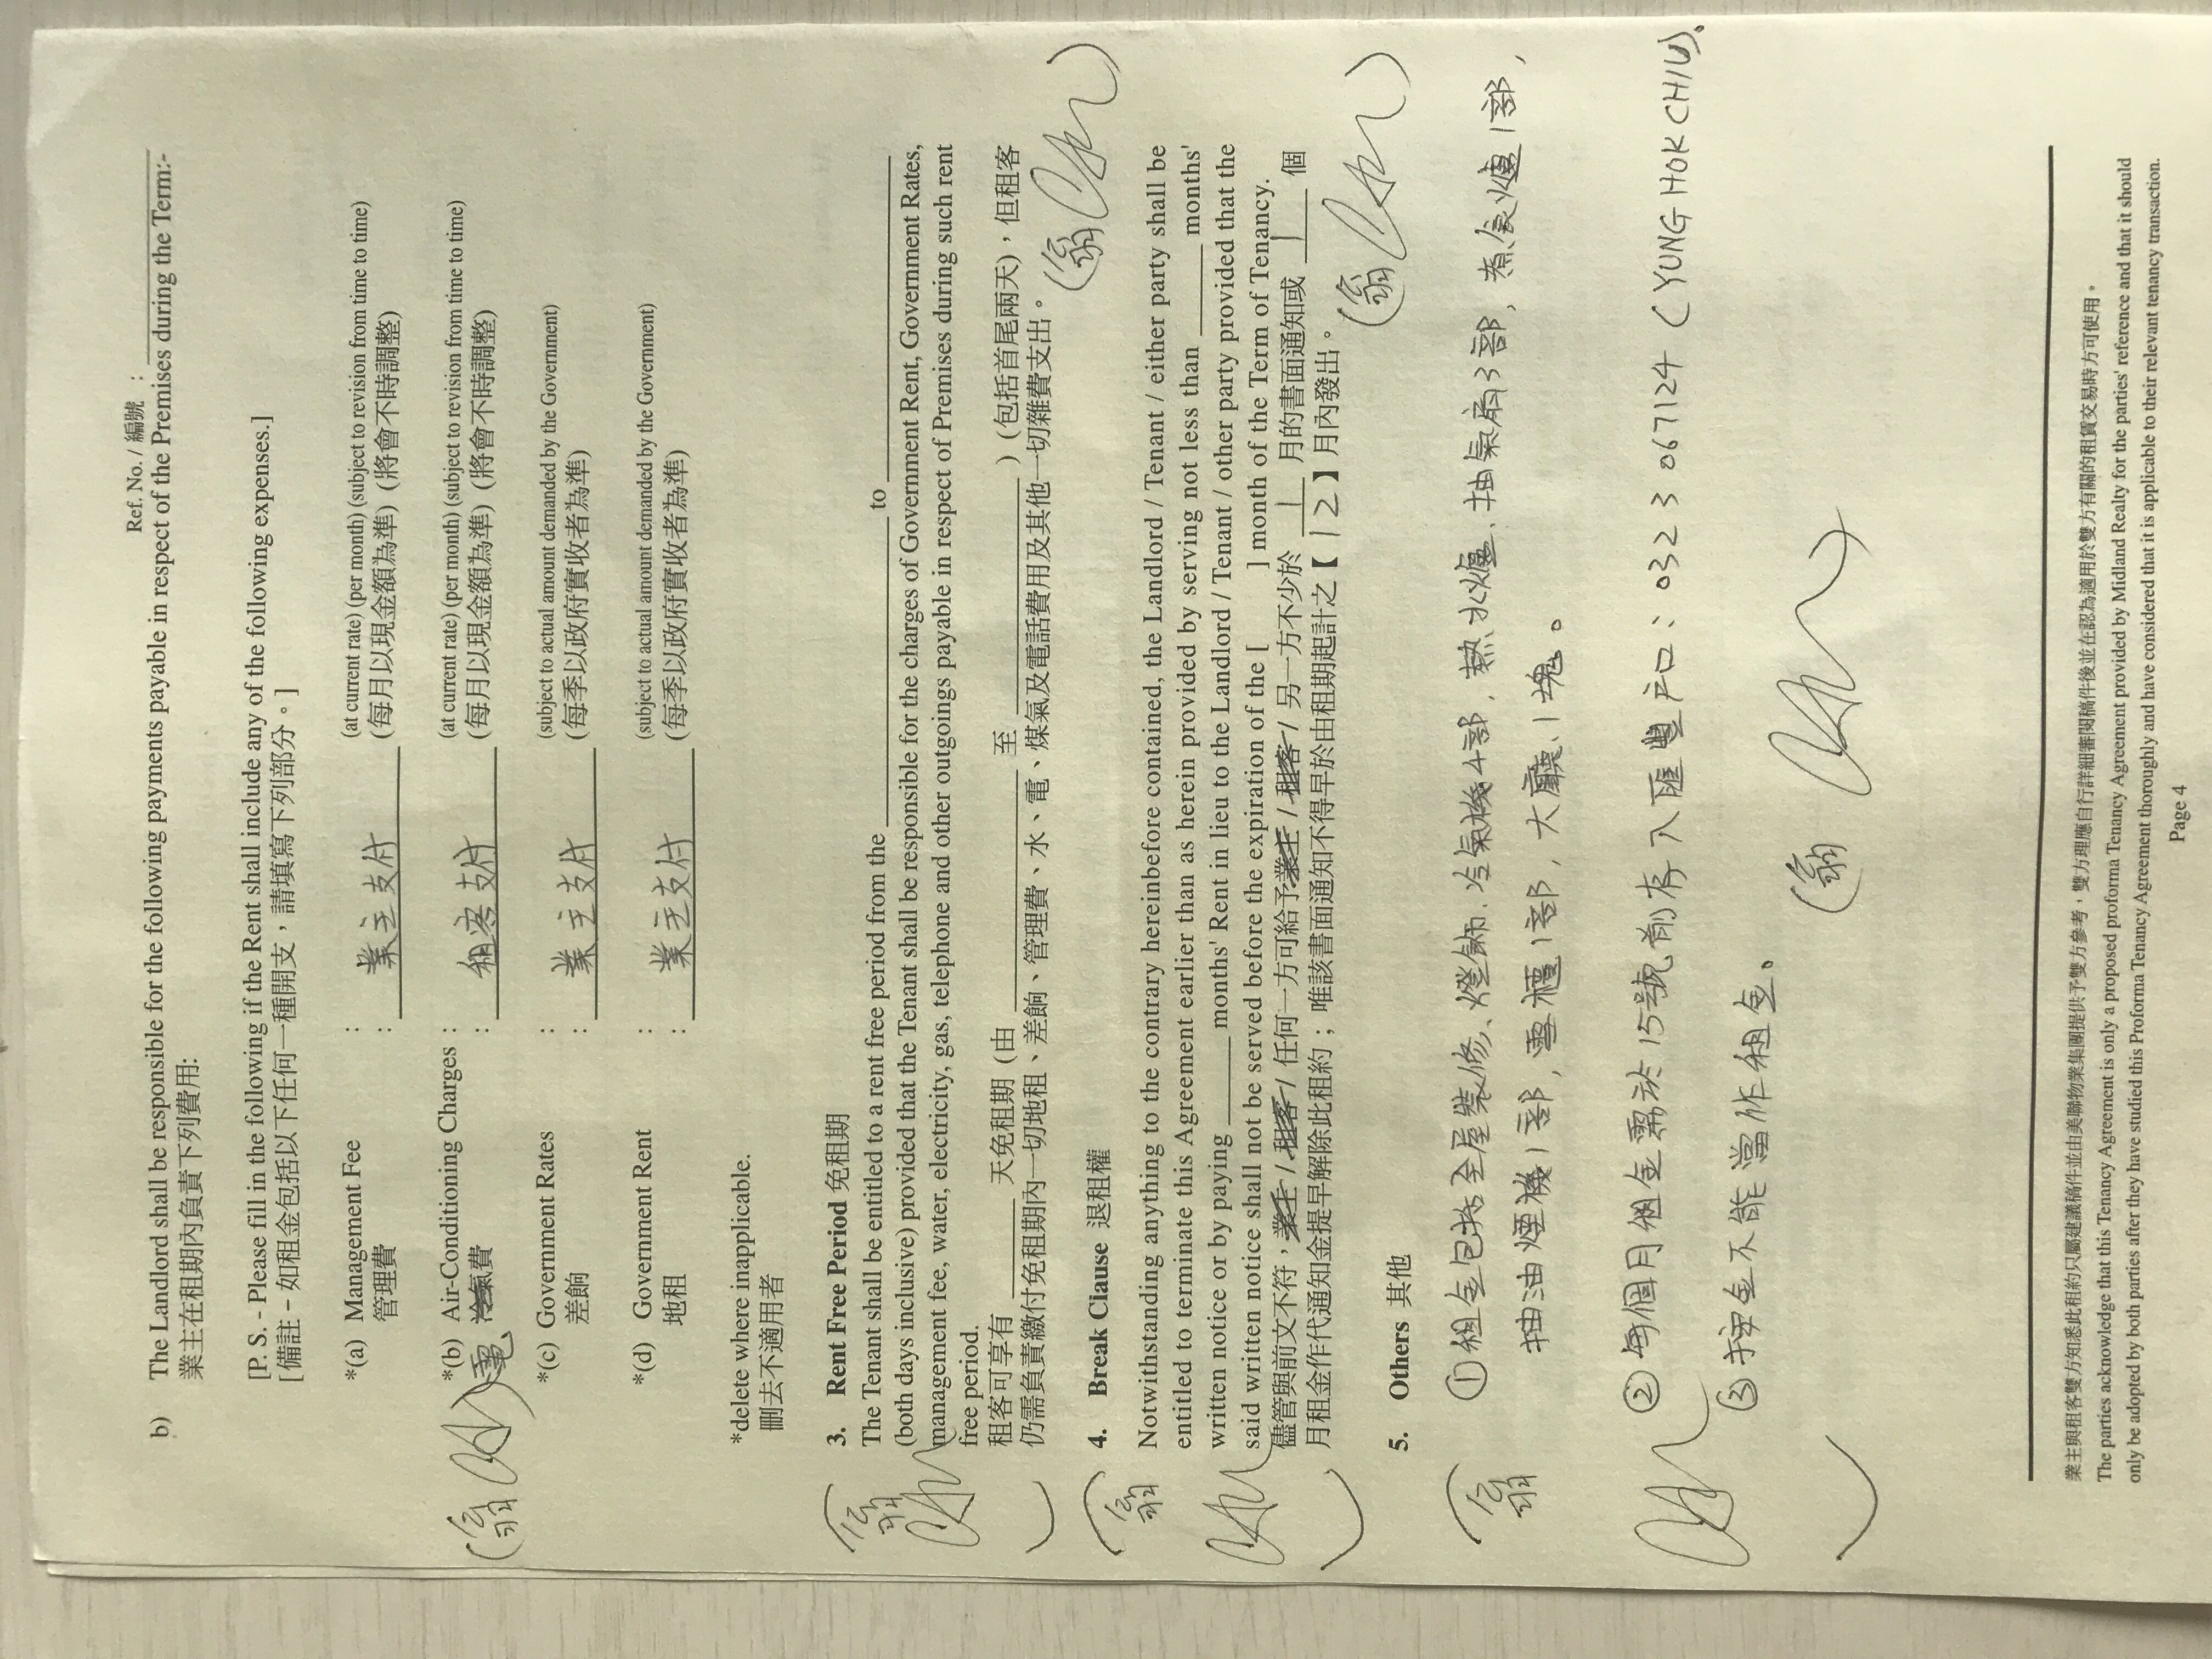 Ref. No. / 編號 :
b) The Landlord shall be responsible for the following payments payable in respect of the Premises during the Term:-
業主在租期內負責下列費用:
[P. S. - Please fill in the following if the Rent shall include any of the following expenses.]
[備註 - 如租金包括以下任何一種開支，請填寫下列部分。]
*(a) Management Fee : (at current rate) (per month) (subject to revision from time to time)
管理費 : 業主支付 (每月以現金額為準) (將會不時調整)
*(b) Air-Conditioning Charges : (at current rate) (per month) (subject to revision from time to time)
(翁 ) 電 冷氣費 : 租客支付 (每月以現金額為準) (將會不時調整)
*(c) Government Rates : (subject to actual amount demanded by the Government)
差餉 : 業主支付 (每季以政府實收者為準)
*(d) Government Rent : (subject to actual amount demanded by the Government)
地租 : 業主支付 (每季以政府實收者為準)
*delete where inapplicable.
刪去不適用者
3. Rent Free Period 免租期
The Tenant shall be entitled to a rent free period from the ____ to ____
(both days inclusive) provided that the Tenant shall be responsible for the charges of Government Rent, Government Rates,
management fee, water, electricity, gas, telephone and other outgoings payable in respect of Premises during such rent
free period.
(翁 )
租客可享有 ____ 天免租期 (由 ____ 至 ____ ) (包括首尾兩天)，但租客
仍需負責繳付免租期內一切地租、差餉、管理費、水、電、煤氣及電話費用及其他一切雜費支出。 (翁 )
4. Break Clause 退租權
Notwithstanding anything to the contrary hereinbefore contained, the Landlord / Tenant / either party shall be
entitled to terminate this Agreement earlier than as herein provided by serving not less than ____ months'
written notice or by paying ____ months' Rent in lieu to the Landlord / Tenant / other party provided that the
said written notice shall not be served before the expiration of the [ ] month of the Term of Tenancy.
(翁 )
儘管與前文不符，業主 / 租客 / 任何一方可給予業主 / 租客 / 另一方不少於 1 月的書面通知或 1 個
月租金作代通知金提早解除此租約；唯該書面通知不得早於由租期起計之【12】月內發出。 (翁 )
5. Others 其他
(翁 )
① 租金包括全屋裝修、燈飾、冷氣機4部，熱水爐、抽氣扇3部，煮食爐1部，
抽油煙機1部，雪櫃1部，大廳 1塊。
② 每個月租金需於15號前存入匯豐戶口：032 3 067124 (YUNG HOK CHIU)、
③ 按金不能當作租金。
(翁 )
業主與租客雙方知悉此租約只屬建議稿件並由美聯物業集團提供予雙方參考，雙方理應自行詳細審閱稿件後並在認為適用於雙方有關的租賃交易時方可使用。
The parties acknowledge that this Tenancy Agreement is only a proposed proforma Tenancy Agreement provided by Midland Realty for the parties' reference and that it should
only be adopted by both parties after they have studied this Proforma Tenancy Agreement thoroughly and have considered that it is applicable to their relevant tenancy transaction.
Page 4